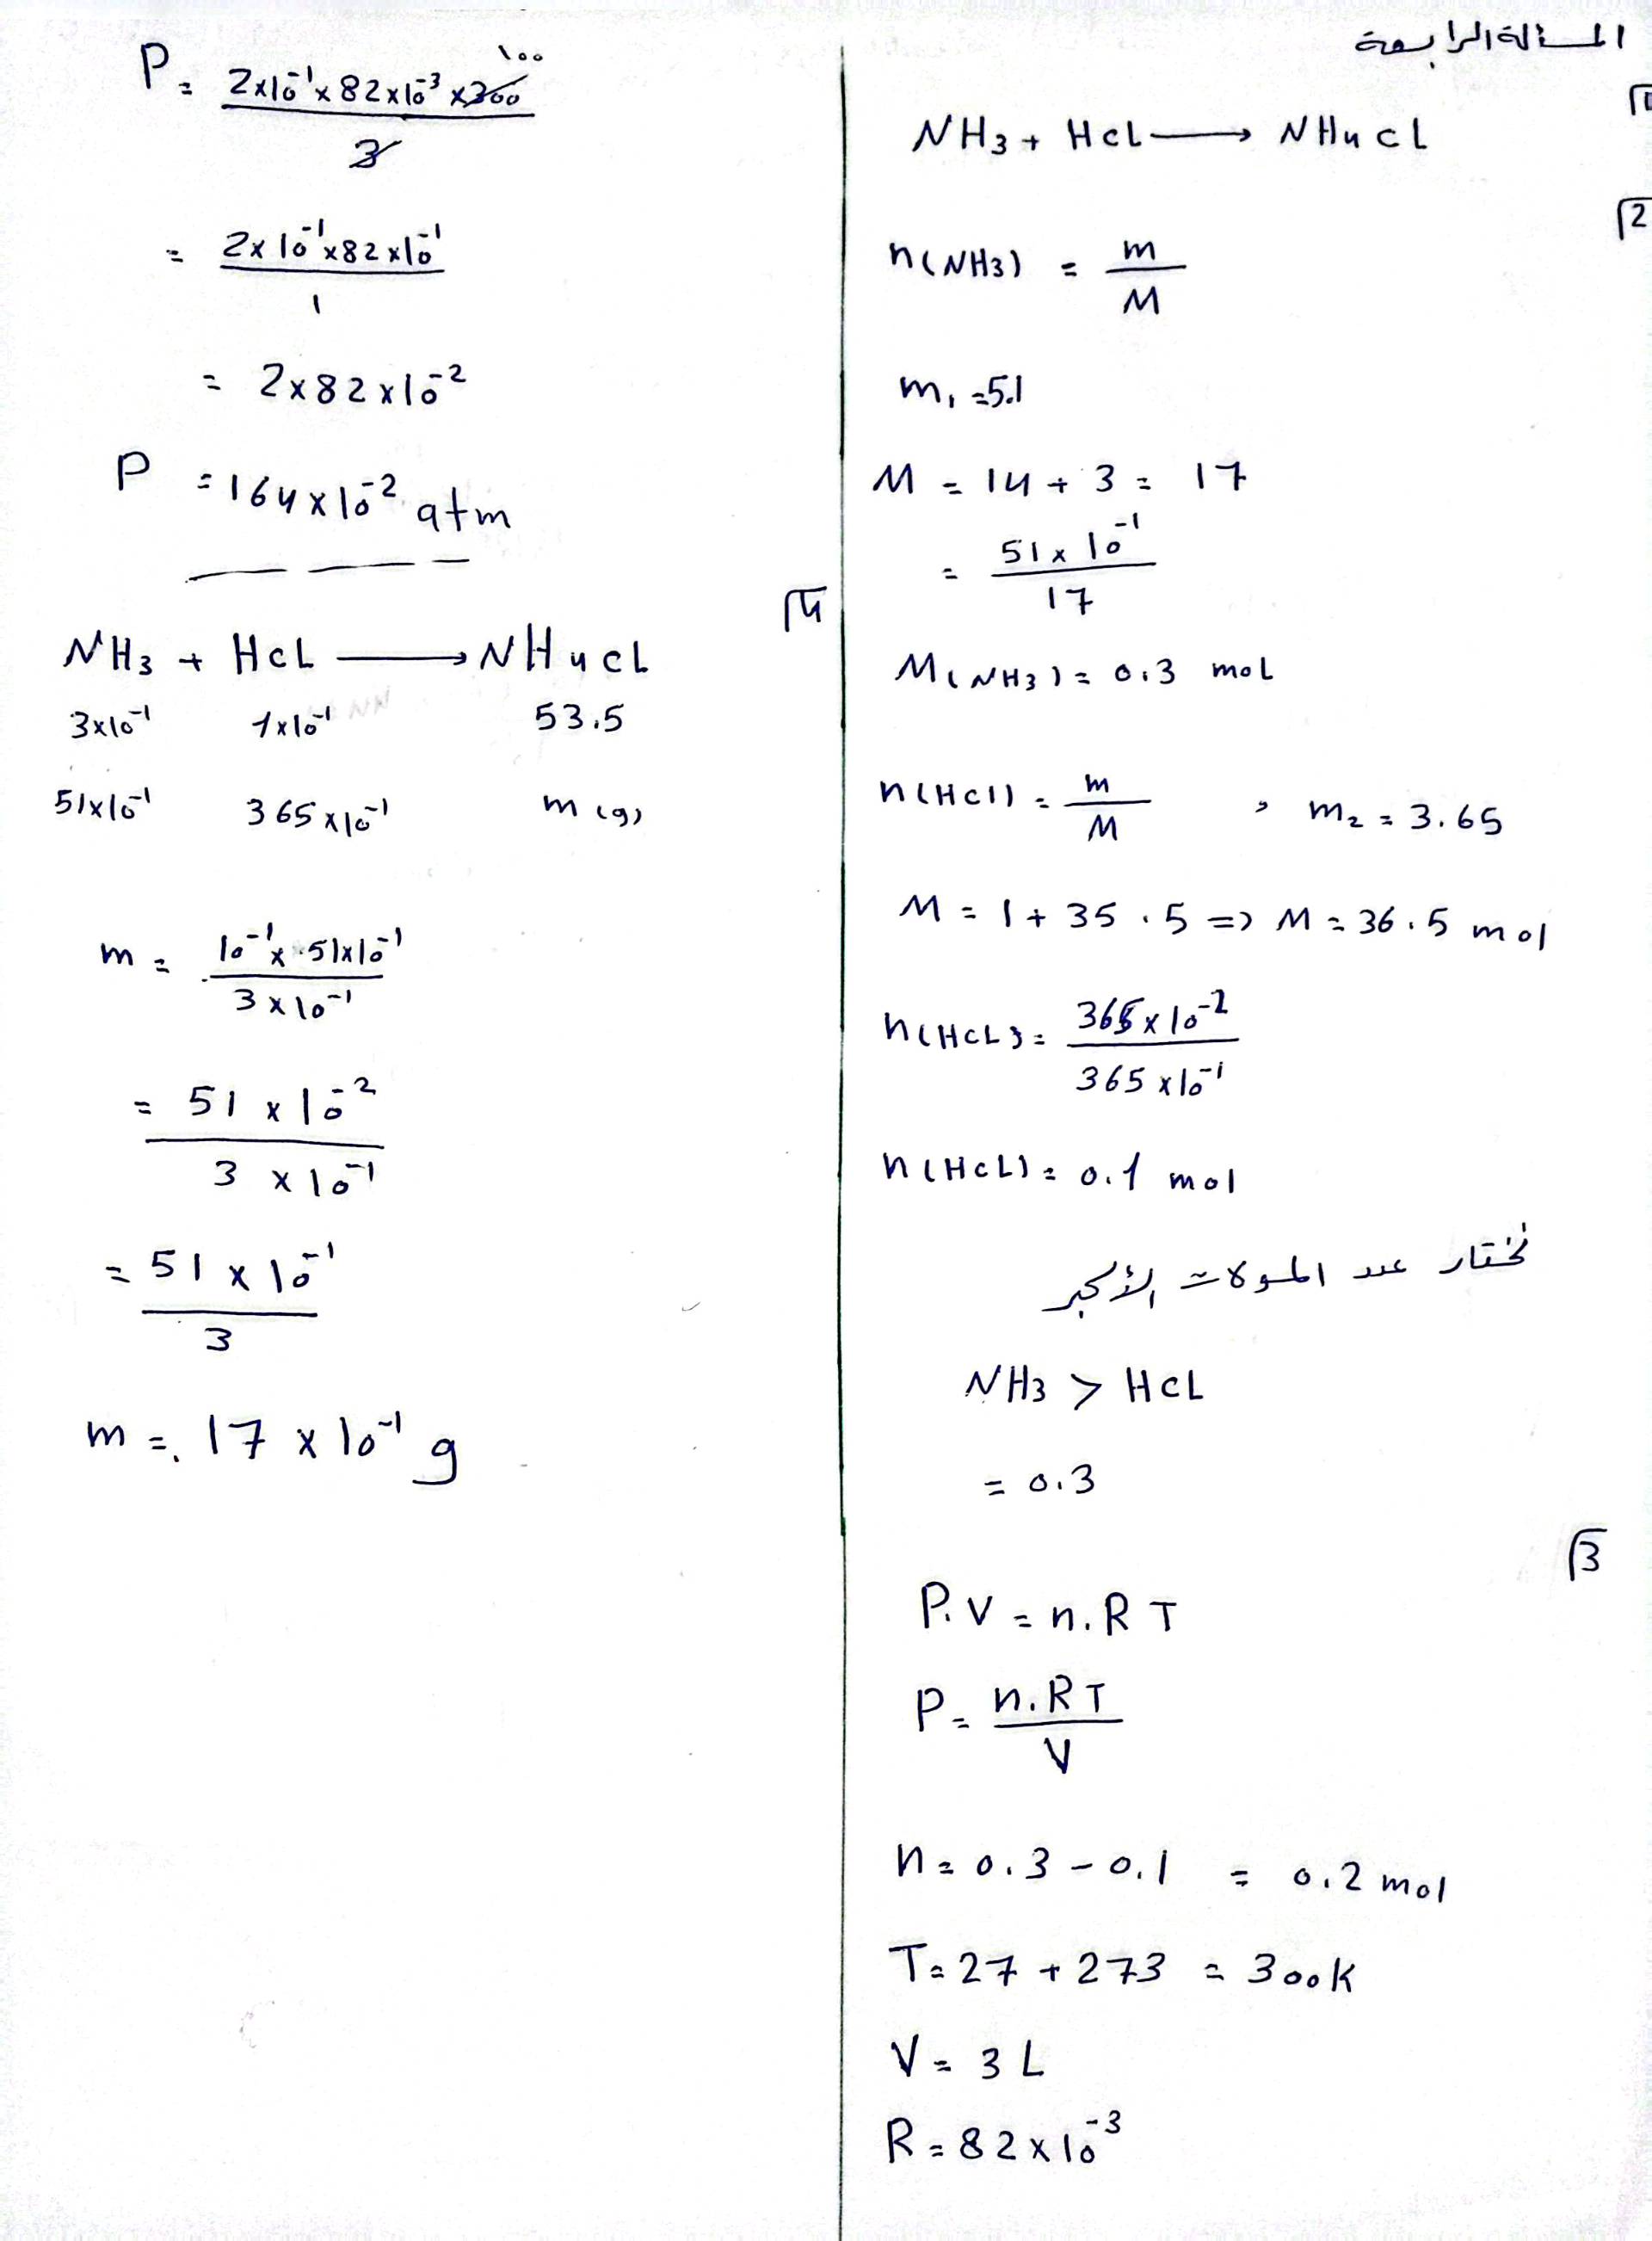 المسألة الرابعة
1
NH3 + HCL ⟶ NH4CL
2
n(NH3) = m/M
m1 = 5.1
M = 14 + 3 = 17
= 51 × 10^-1 / 17
M(NH3) = 0.3 mol
n(HCl) = m/M , m2 = 3.65
M = 1 + 35.5 => M = 36.5 mol
n(HCL) = 365 × 10^-2 / 365 × 10^-1
n(HCL) = 0.1 mol
نختار عدد المولات الأكبر
NH3 > HCL
= 0.3
3
P.V = n.RT
P = n.RT / V
n = 0.3 - 0.1 = 0.2 mol
T = 27 + 273 = 300k
V = 3 L
R = 82 × 10^-3
P = 2×10^-1 × 82×10^-3 × 300 / 3
100
= 2×10^-1 × 82×10^-1 / 1
= 2×82×10^-2
P = 164×10^-2 atm
4
NH3 + HCL ⟶ NH4CL
3×10^-1 1×10^-1 53.5
51×10^-1 365×10^-1 m(g)
m = 10^-1 × 51×10^-1 / 3×10^-1
= 51 × 10^-2 / 3 × 10^-1
= 51 × 10^-1 / 3
m = 17 × 10^-1 g